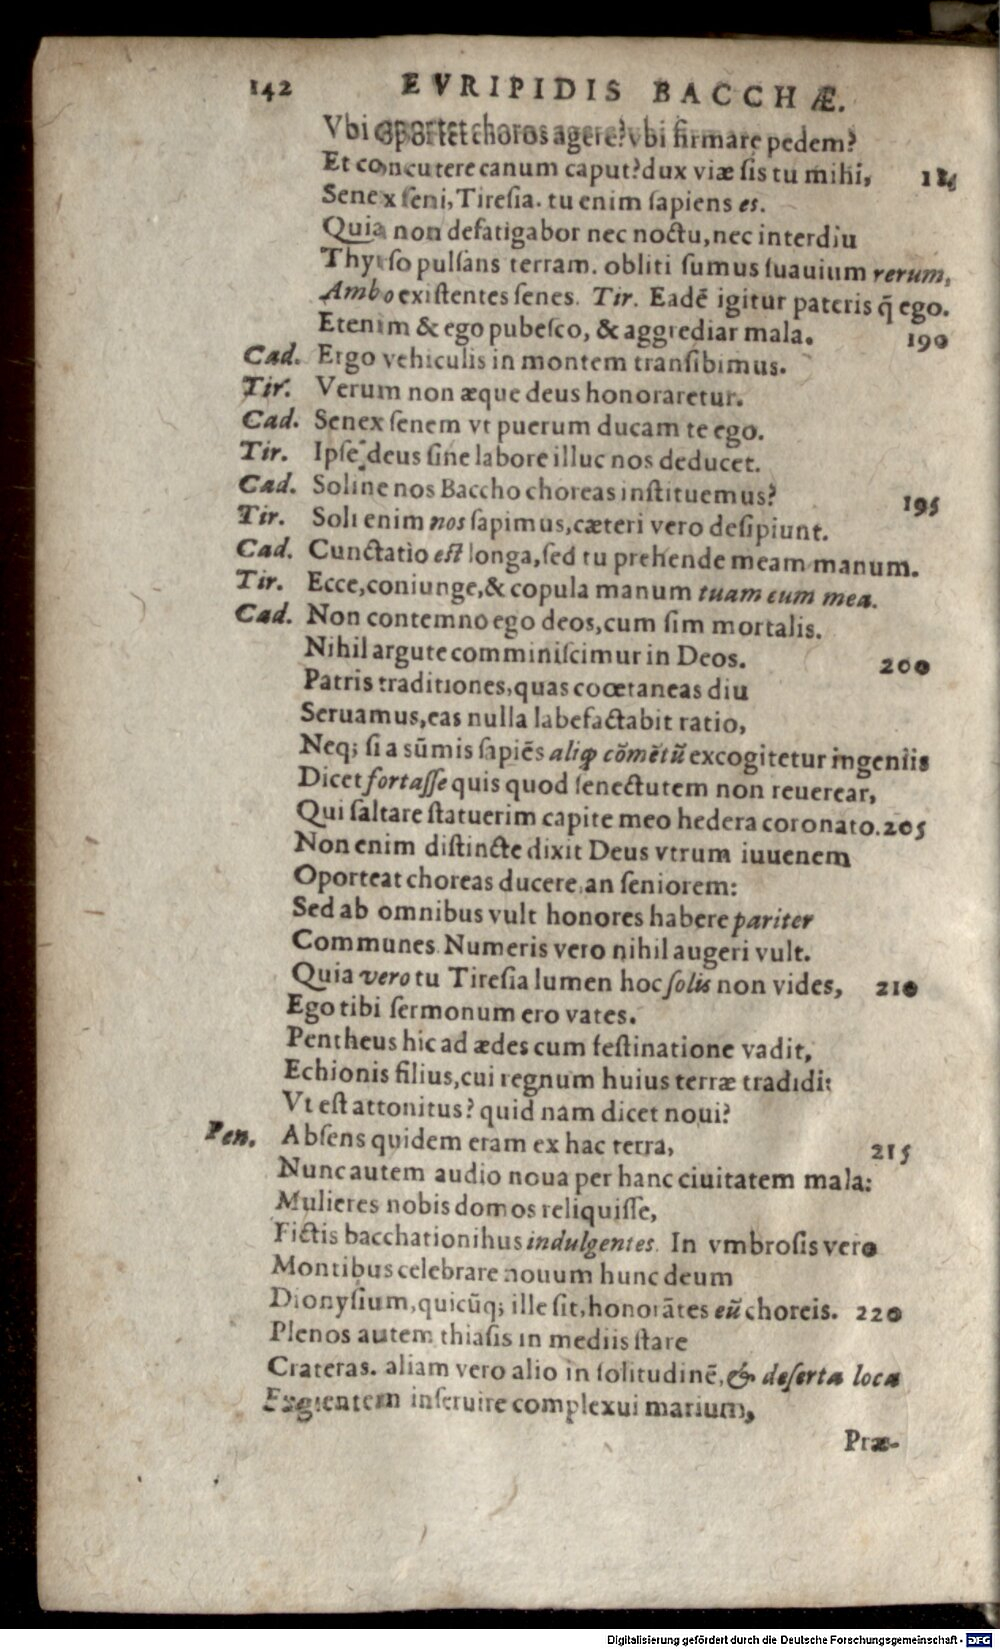 142 EVRIPIDIS BACCHÆ.
Vbi oportet choros agere? vbi firmare pedem?
Et concutere canum caput? dux viæ sis tu mihi, 185
Senex seni, Tiresia. tu enim sapiens es.
Quia non defatigabor nec noctu, nec interdiu
Thyrso pulsans terram. obliti sumus suauium rerum,
Ambo existentes senes. Tir. Eadē igitur pateris q̃ ego.
Etenim & ego pubesco, & aggrediar mala. 190
Cad. Ergo vehiculis in montem transibimus.
Tir. Verum non æque deus honoraretur.
Cad. Senex senem vt puerum ducam te ego.
Tir. Ipse deus sine labore illuc nos deducet.
Cad. Soline nos Baccho choreas instituemus? 195
Tir. Soli enim nos sapimus, cæteri vero desipiunt.
Cad. Cunctatio est longa, sed tu prehende meam manum.
Tir. Ecce, coniunge, & copula manum tuam cum mea.
Cad. Non contemno ego deos, cum sim mortalis.
Nihil argute comminiscimur in Deos. 200
Patris traditiones, quas coœtaneas diu
Seruamus, eas nulla labefactabit ratio,
Neq; si a sūmis sapiēs aliqđ cōmētū excogitetur ingeniis
Dicet fortasse quis quod senectutem non reuerear,
Qui saltare statuerim capite meo hedera coronato. 205
Non enim distincte dixit Deus vtrum iuuenem
Oporteat choreas ducere, an seniorem:
Sed ab omnibus vult honores habere pariter
Communes. Numeris vero nihil augeri vult.
Quia vero tu Tiresia lumen hoc solis non vides, 210
Ego tibi sermonum ero vates.
Pentheus hic ad ædes cum festinatione vadit,
Echionis filius, cui regnum huius terræ tradidi:
Vt est attonitus? quid nam dicet noui?
Pen. Absens quidem eram ex hac terra, 215
Nunc autem audio noua per hanc ciuitatem mala:
Mulieres nobis domos reliquisse,
Fictis bacchationihus indulgentes. In vmbrosis vero
Montibus celebrare nouum hunc deum
Dionysium, quicūq; ille sit, honorātes eū choreis. 220
Plenos autem thiasis in mediis stare
Crateras. aliam vero alio in solitudinē, & deserta loca
inseruire complexui marium,
Præ-
Digitalisierung gefördert durch die Deutsche Forschungsgemeinschaft - DFG